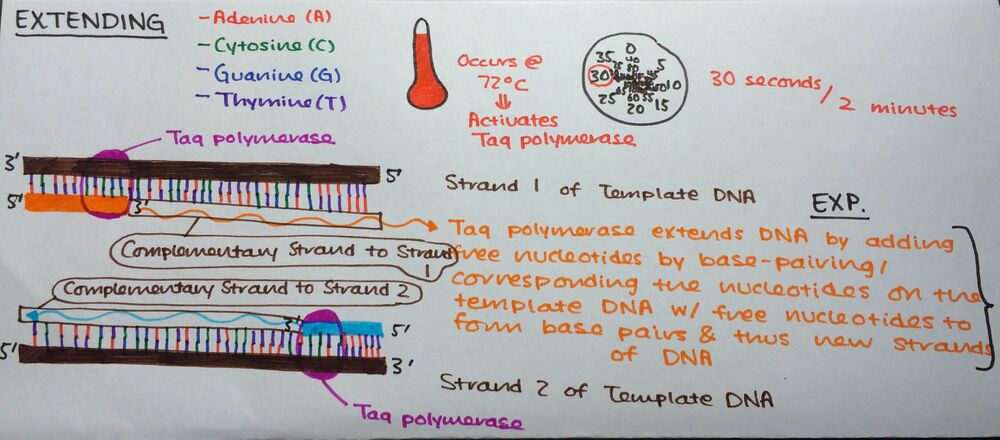 EXTENDING
- Adenine (A)
- Cytosine (C)
- Guanine (G)
- Thymine (T)
Occurs @
72°C
Activates
Taq polymerase
0
5
10
15
20
25
30
35
30 seconds / 2 minutes
Taq polymerase
3'
5'
Strand 1 of Template DNA
5'
3'
EXP.
Complementary Strand to Strand
1
Taq polymerase extends DNA by adding
free nucleotides by base-pairing/
corresponding the nucleotides on the
template DNA w/ free nucleotides to
form base pairs & thus new strands
of DNA
Complementary Strand to Strand 2
3'
5'
5'
3'
Strand 2 of Template DNA
Taq polymerase